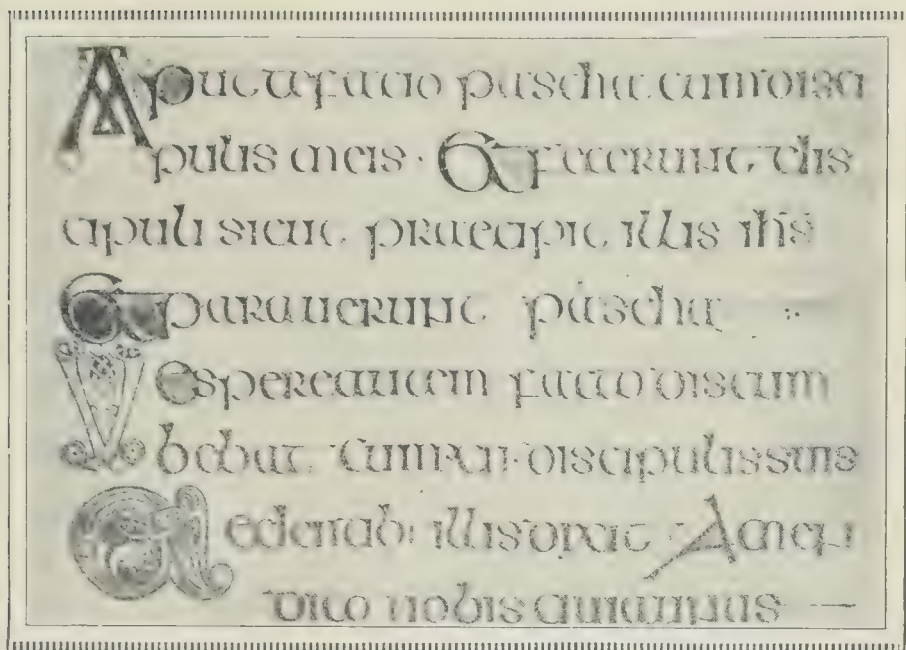 Aput te facio pascha cum disci
pulis meis · Et fecerunt dis
cipuli sicut praecipit illis ihs
Et parauerunt pascha
Uespere autem facto discum
bebat cum xii discipulis suis
Et edentib: illis dixit Amen
dico uobis quia unus